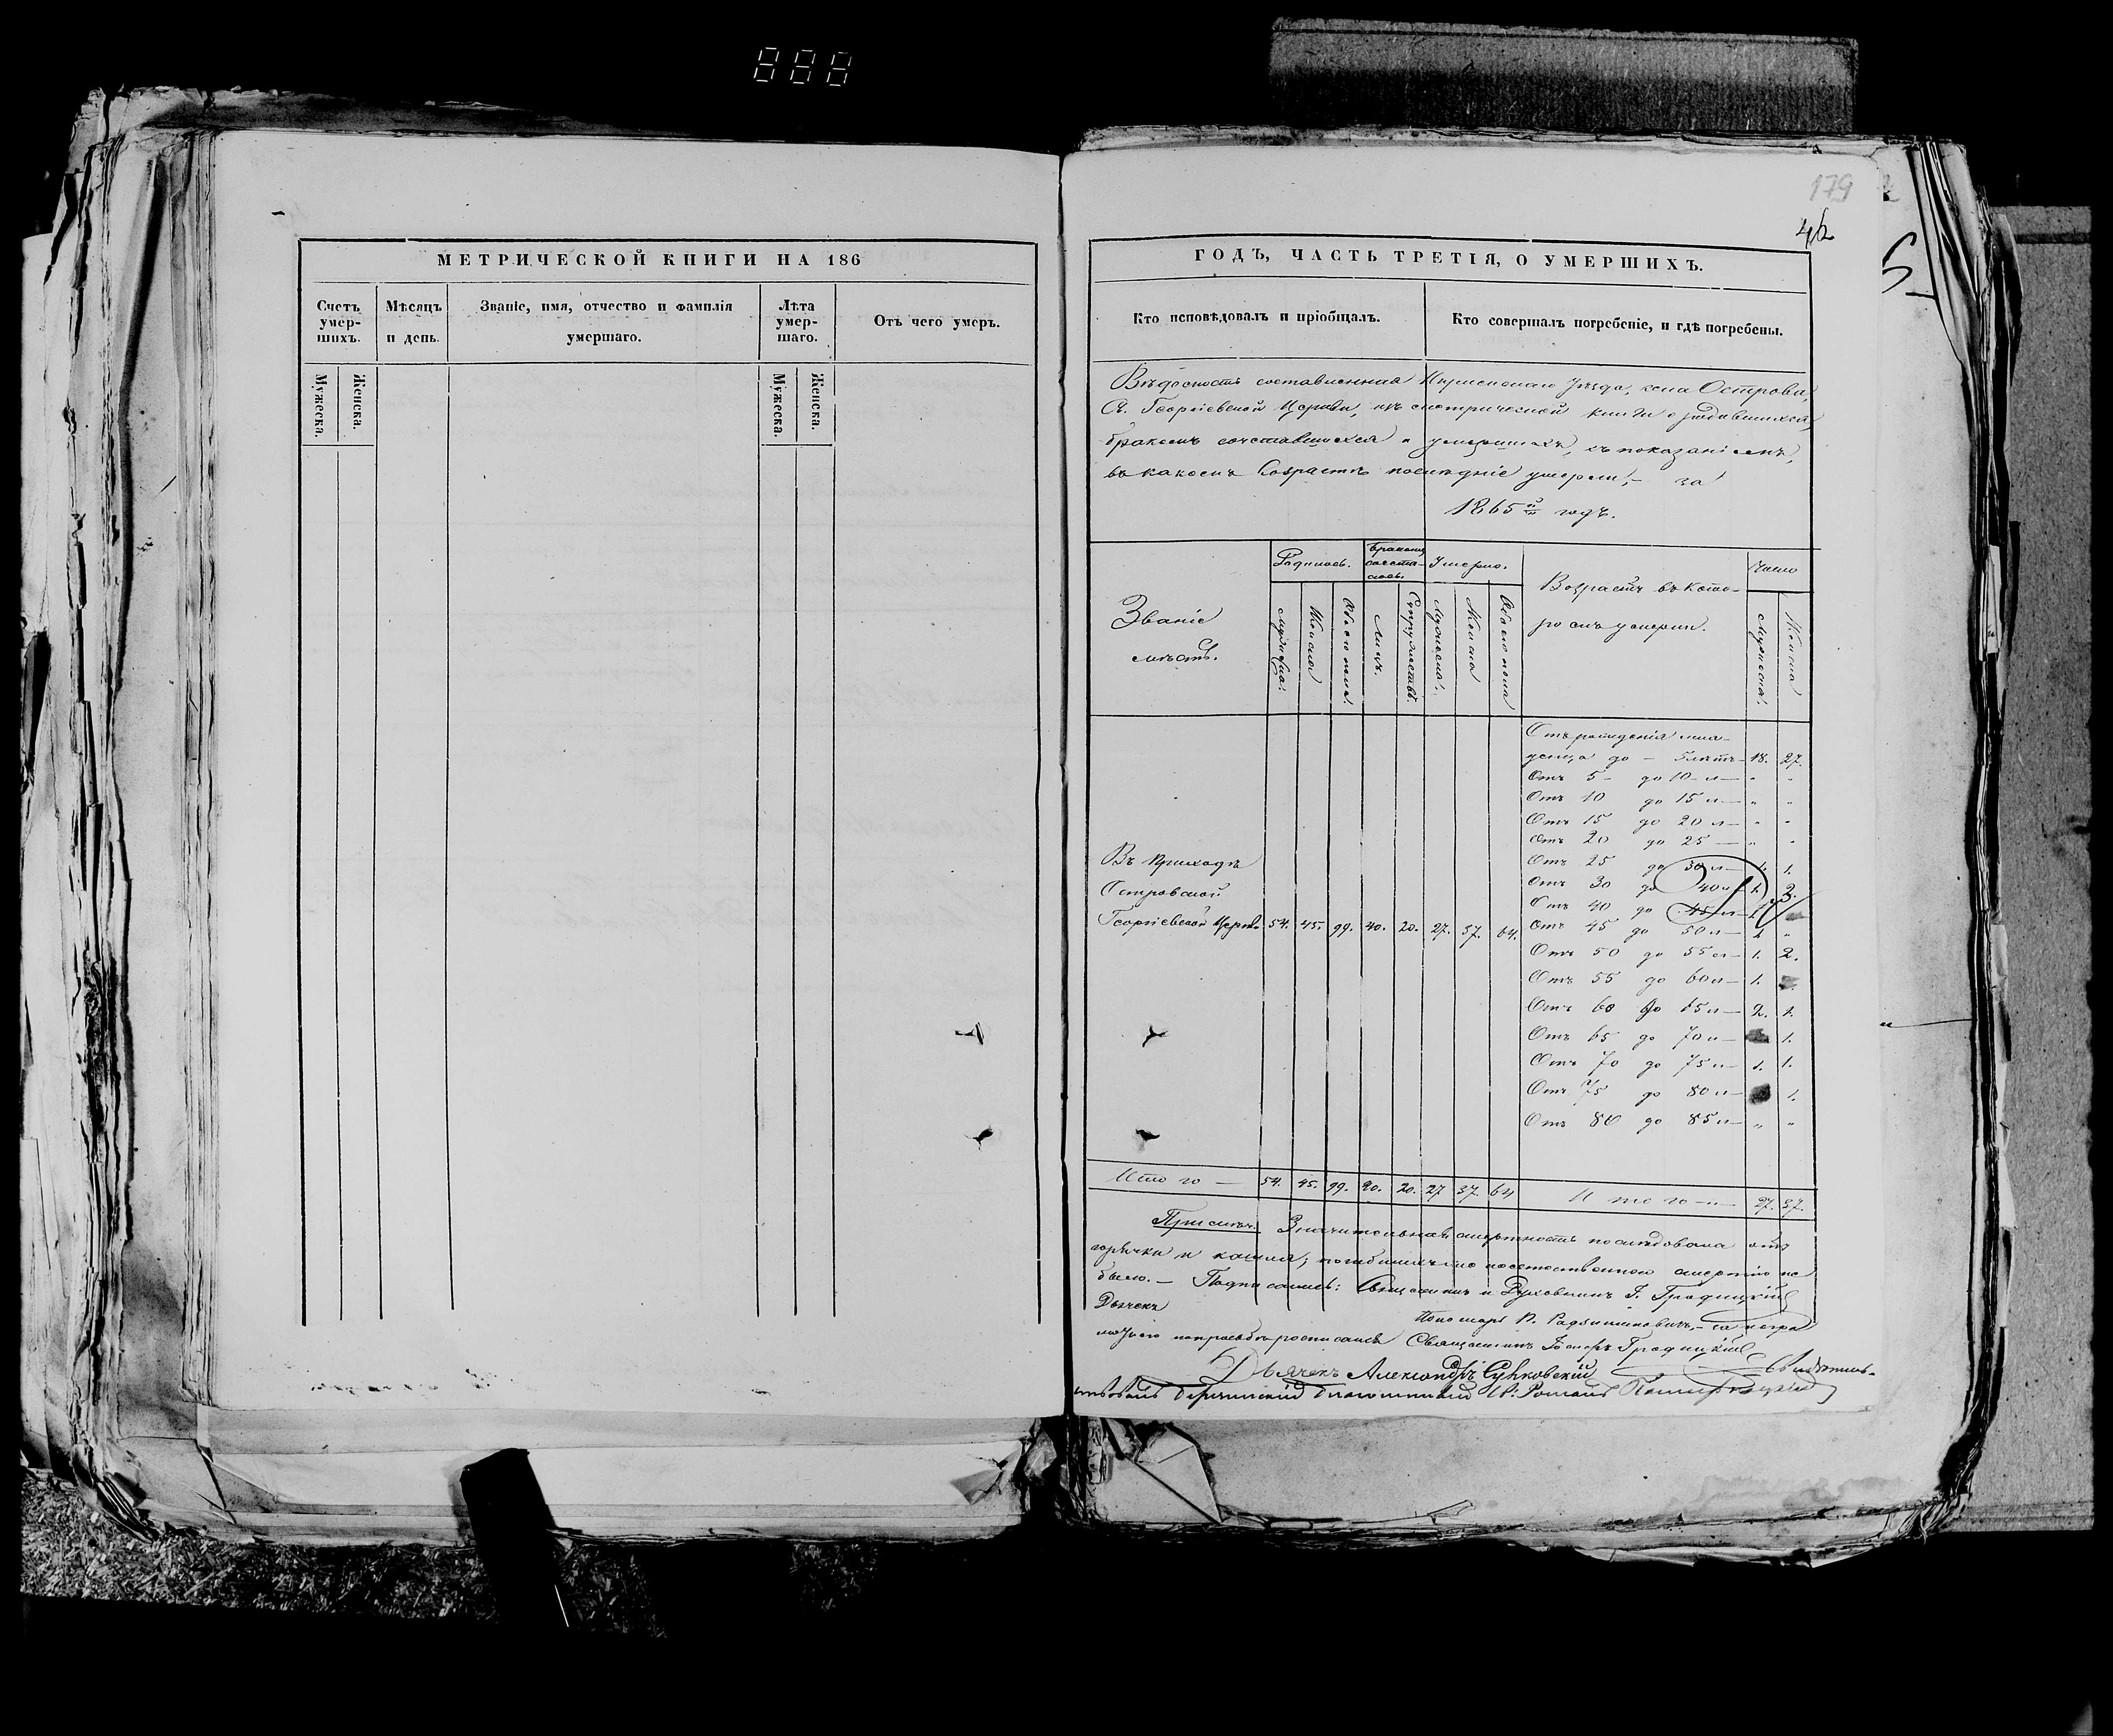 888
МЕТРИЧЕСКОЙ КНИГИ НА 186
Счетъ умер-шихъ.
Мѣсяцъ и день.
Званіе, имя, отчество и фамилія умершаго.
Лѣта умер-шаго.
Отъ чего умеръ.
Мужеска.
Женска.
Мужеска.
Женска.
179
46
ГОДЪ, ЧАСТЬ ТРЕТІЯ, О УМЕРШИХЪ.
Кто исповѣдовалъ и пріобщалъ.
Кто совершалъ погребеніе, и гдѣ погребены.
Вѣдомость составленная уѣзда, села Острова,
Св. Георгіевской Церкви, изъ метрической книги о родившихся,
бракомъ сочетавшихся и умершихъ, съ показаніемъ,
въ какомъ возрастѣ послѣдніе умерли, за
1865й годъ.
Званіе мѣстъ.
Родилось.
Бракомъ сочета-лось.
Умерло.
Возрастъ въ кото-
ромъ умерли.
Число
Мужеска.
Женска
Обоего пола.
Лицъ.
Супружествъ.
Мужеска.
Женска
Обоего пола
Мужеска.
Женска
Отъ рожденія мла-
денца до - 5 лѣтъ - 18. 27.
Отъ 5 - до 10 - л — " "
Отъ 10 до 15 л — " "
Отъ 15 до 20 л — " "
Отъ 20 до 25 — " "
Отъ 25 до 30 л — 1. 1.
Отъ 30 до 40 л 1. 3.
Отъ 40 до 45 л
Отъ 45 до 50 л — "
Отъ 50 до 55 л — 1. 2.
Отъ 55 до 60 л — 1.
Отъ 60 до 65 л — 2. 1.
Отъ 65 до 70 л — 1.
Отъ 70 до 75 л — 1. 1.
Отъ 75 до 80 л — 1.
Отъ 80 до 85 л — " "
Въ приходѣ
Островской
Георгіевской Церкв. 54. 45. 99. 40. 20. 27. 37. 64.
Итого — 54. 45. 99. 40. 20. 27 37. 64 Итого — 27. 37.
Примѣч. Значительная смертность послѣдовала отъ
горячки и кашля; погибшихъ смертію не
было. — Подписались: Священникъ и Духовникъ І. Градицкій
Дьячекъ
Пономарь — за негра
мотнаго росписался Священникъ Градицкій
Дьячекъ Александръ Сулковскій Свидѣтель-
ствовалъ благочинный Романъ